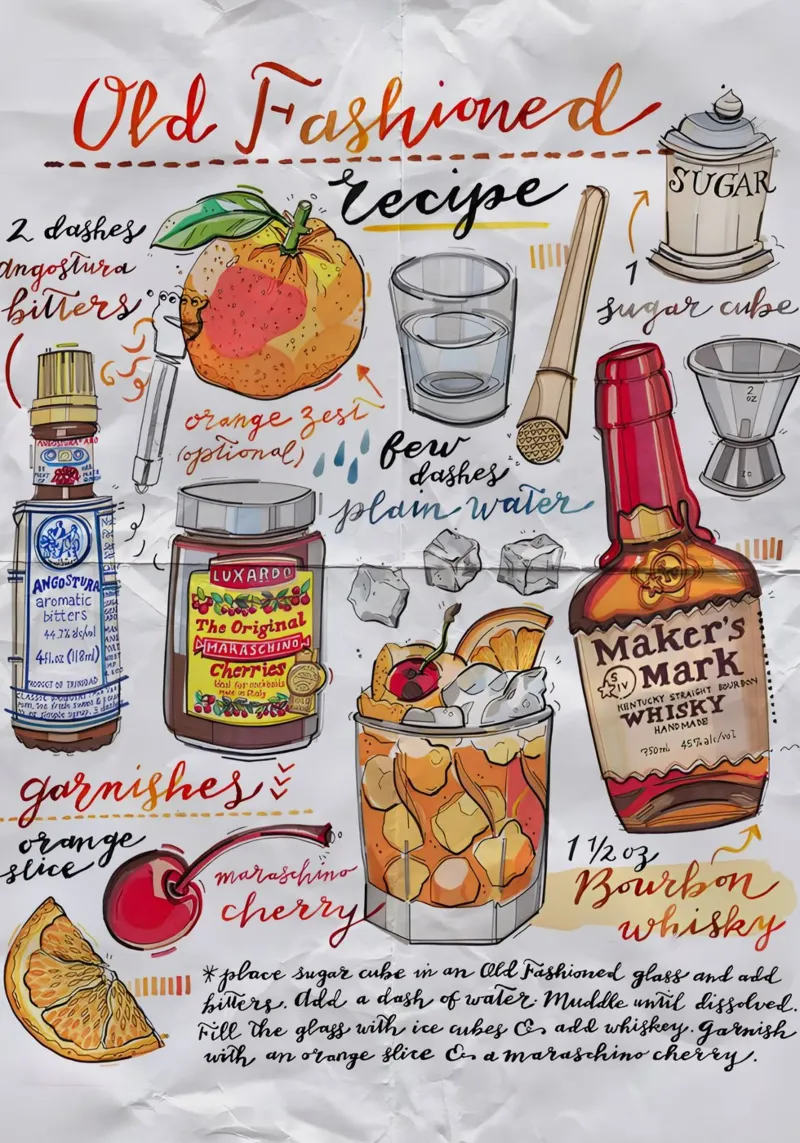 Old Fashioned
recipe
2 dashes
angostura
bitters
SUGAR
1
sugar cube
orange zest
(optional)
few
dashes
plain water
2
OZ
ANGOSTURA
aromatic
bitters
44.7% alc/vol
4fl.oz (118ml)
PRODUCT OF TRINIDAD
LUXARDO
The Original
MARASCHINO
Cherries
Ideal for cocktails
Made in Italy
Maker's
Mark
S IV
KENTUCKY STRAIGHT BOURBON
WHISKY
HANDMADE
750ml 45% alc/vol
garnishes
orange
slice
maraschino
cherry
1 1/2 oz
Bourbon
whisky
*place sugar cube in an Old Fashioned glass and add
bitters. Add a dash of water. Muddle until dissolved.
Fill the glass with ice cubes & add whiskey. Garnish
with an orange slice & a maraschino cherry.